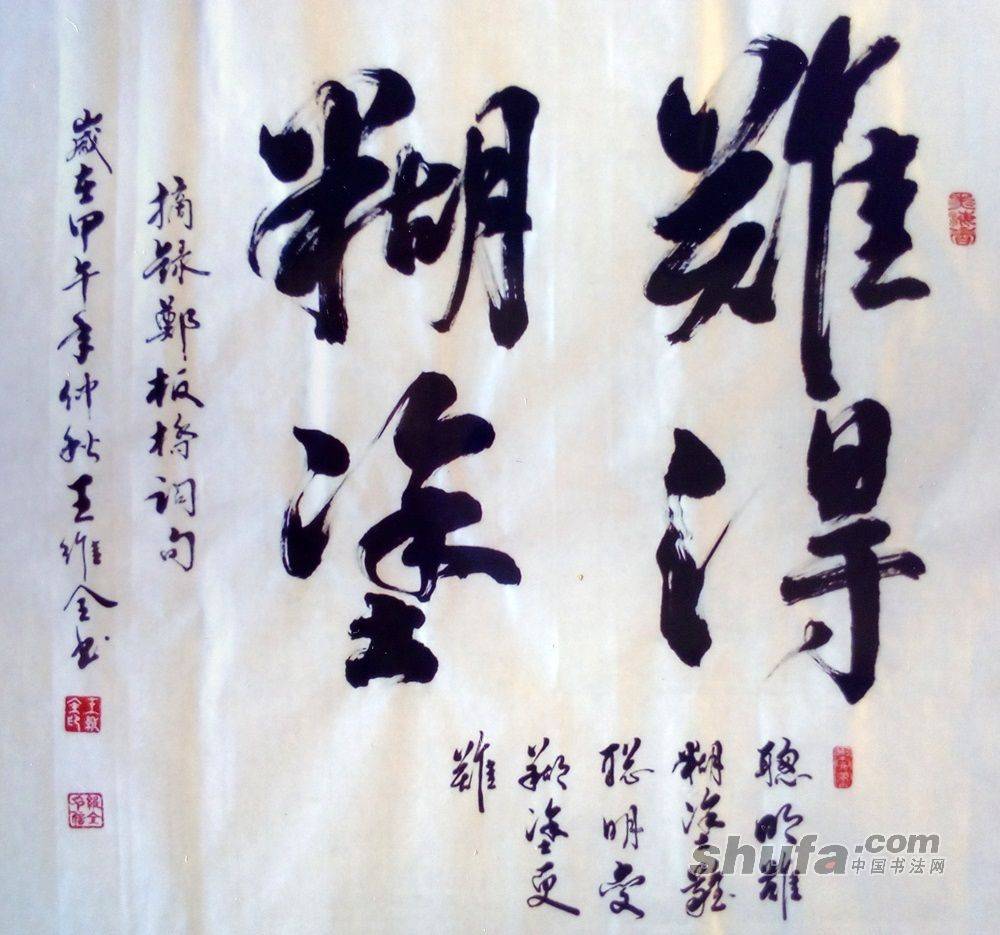 難得
糊塗
聰明難
糊塗難
聡明变
糊塗更
難
摘録鄭板橋詞句
歲在甲午年仲秋王維全书
王維全印
shufa.com
中国书法网